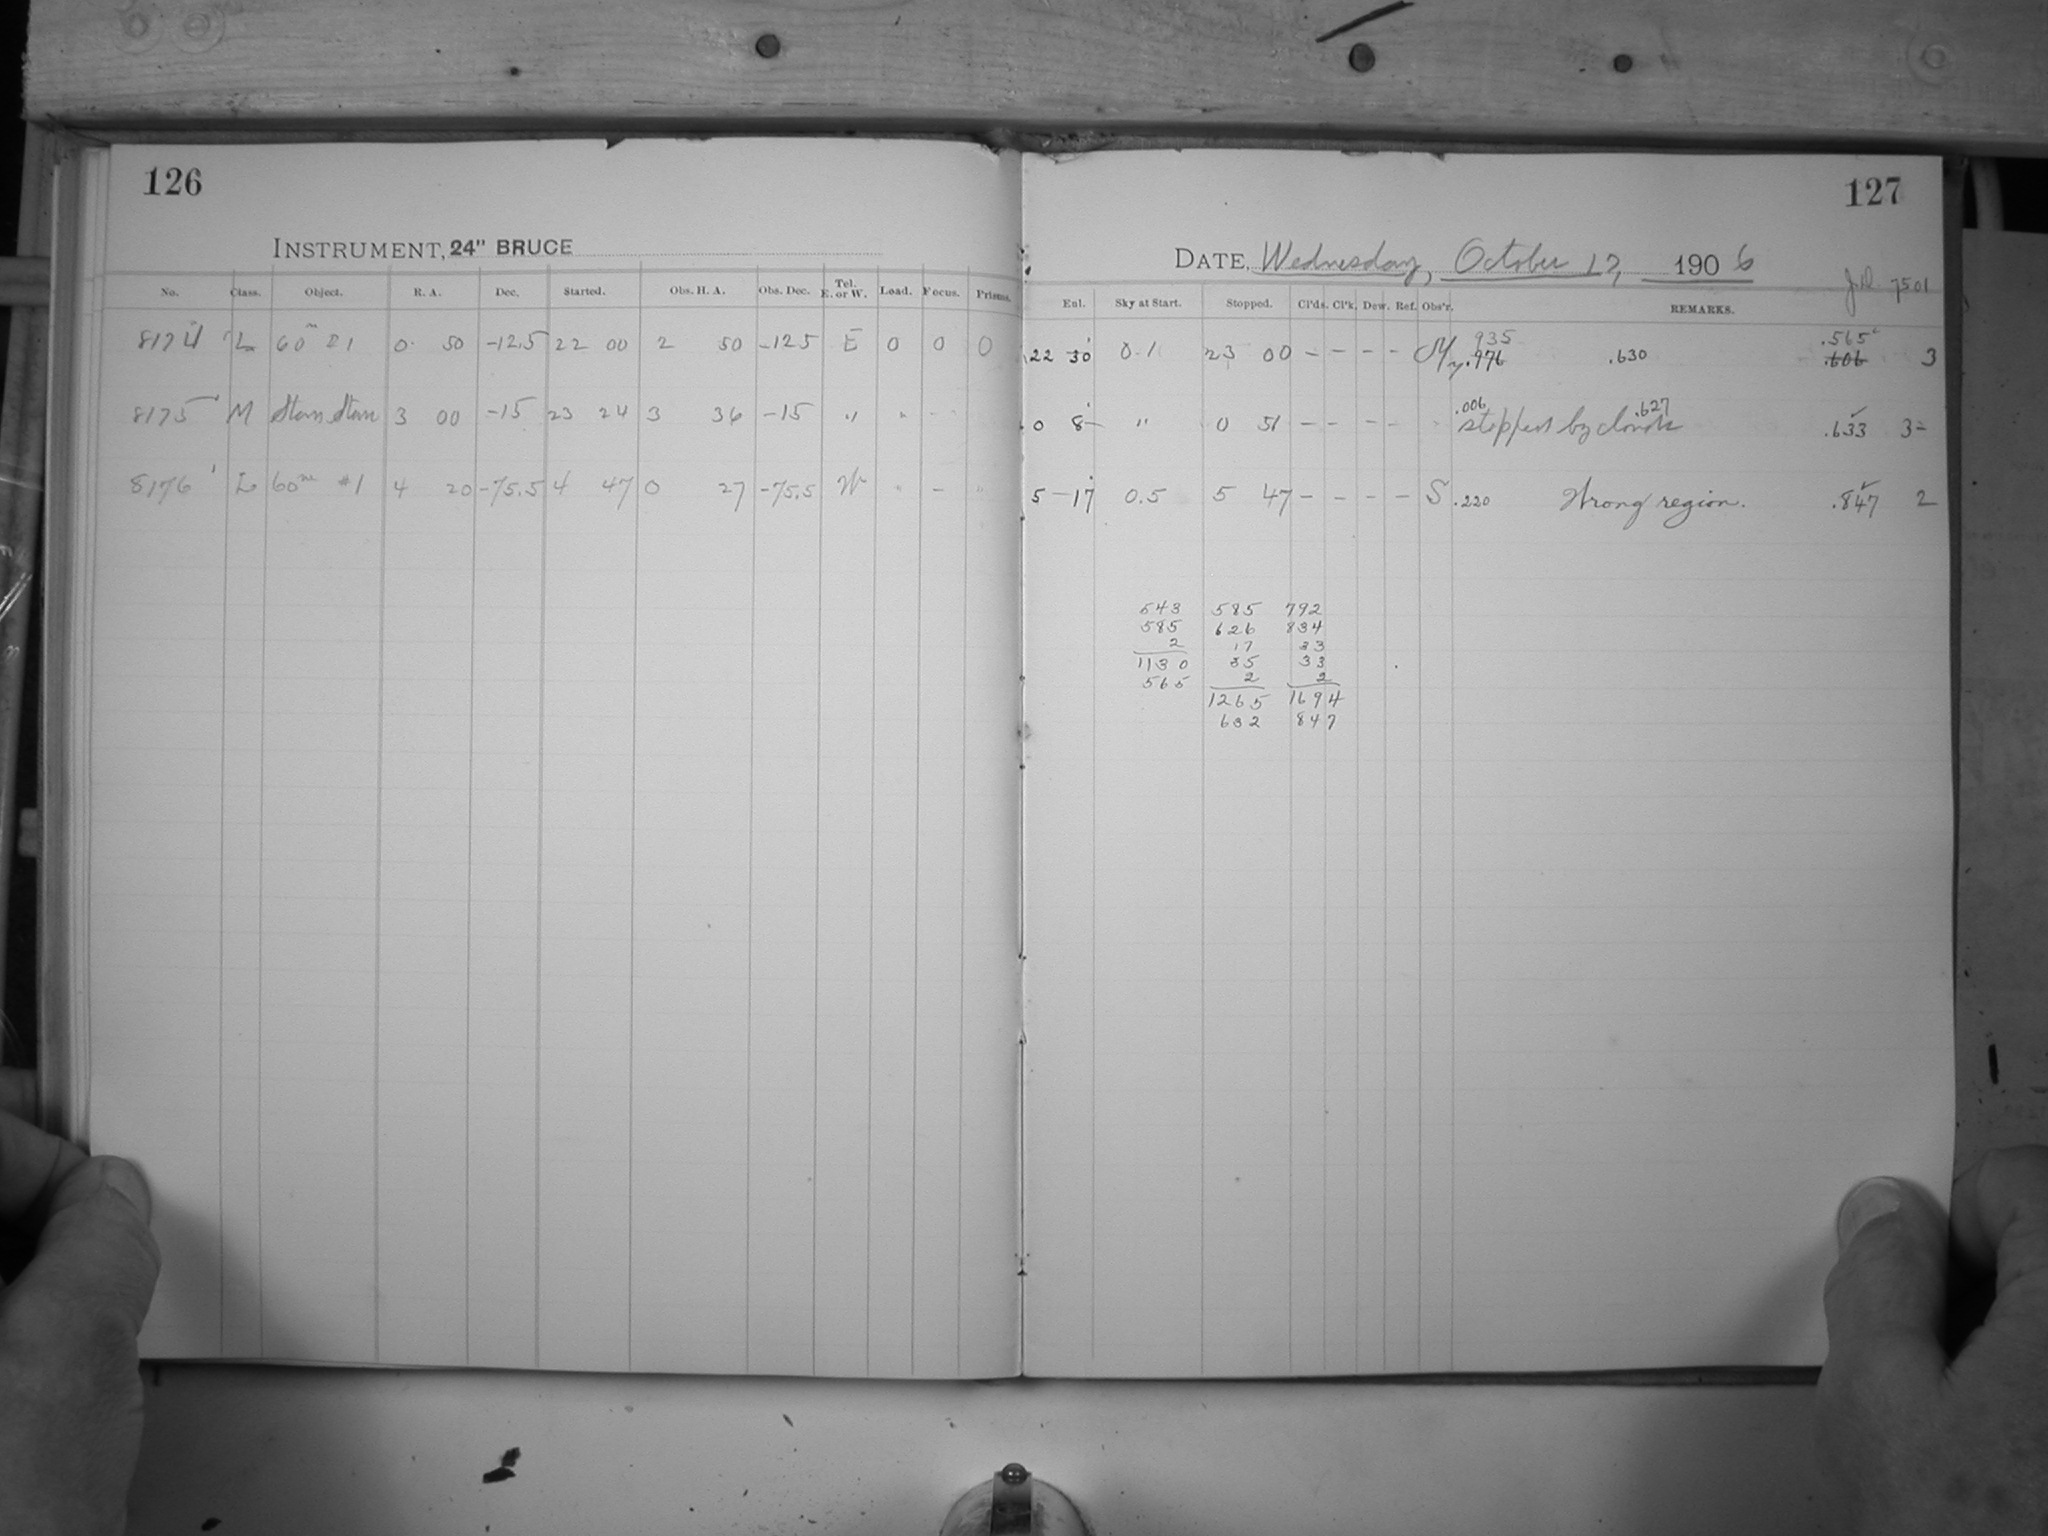 126
INSTRUMENT, 24" BRUCE
No. Class. Object. R. A. Dec. Started. Obs. H. A. Obs. Dec. Tel. E. or W. Load. Focus. Prisms.
8174 L 60m #1 0 50 -12.5 22 00 2 50 -12.5 E 0 0 0
8175 M 3 00 -15 23 24 3 36 -15 " " - -
8176 L 60m #1 4 20 -75.5 4 47 0 27 -75.5 W " - "
127
DATE, Wednesday, October 17, 1906
J.D. 7501
Enl. Sky at Start. Stopped. Cl'ds. Cl'k. Dew. Ref. Obs'r. REMARKS.
935 .565
22 30 0.1 23 00 - - - - My .976 .630 .606 3
.006 .627
0 8- " 0 51 - - - - " Stopped by clouds .633 3-
5 -17 0.5 5 47 - - - - S .220 Wrong region. .847 2
543 585 792
585 626 834
2 17 33
1130 35 33
565 2 2
1265 1694
632 847